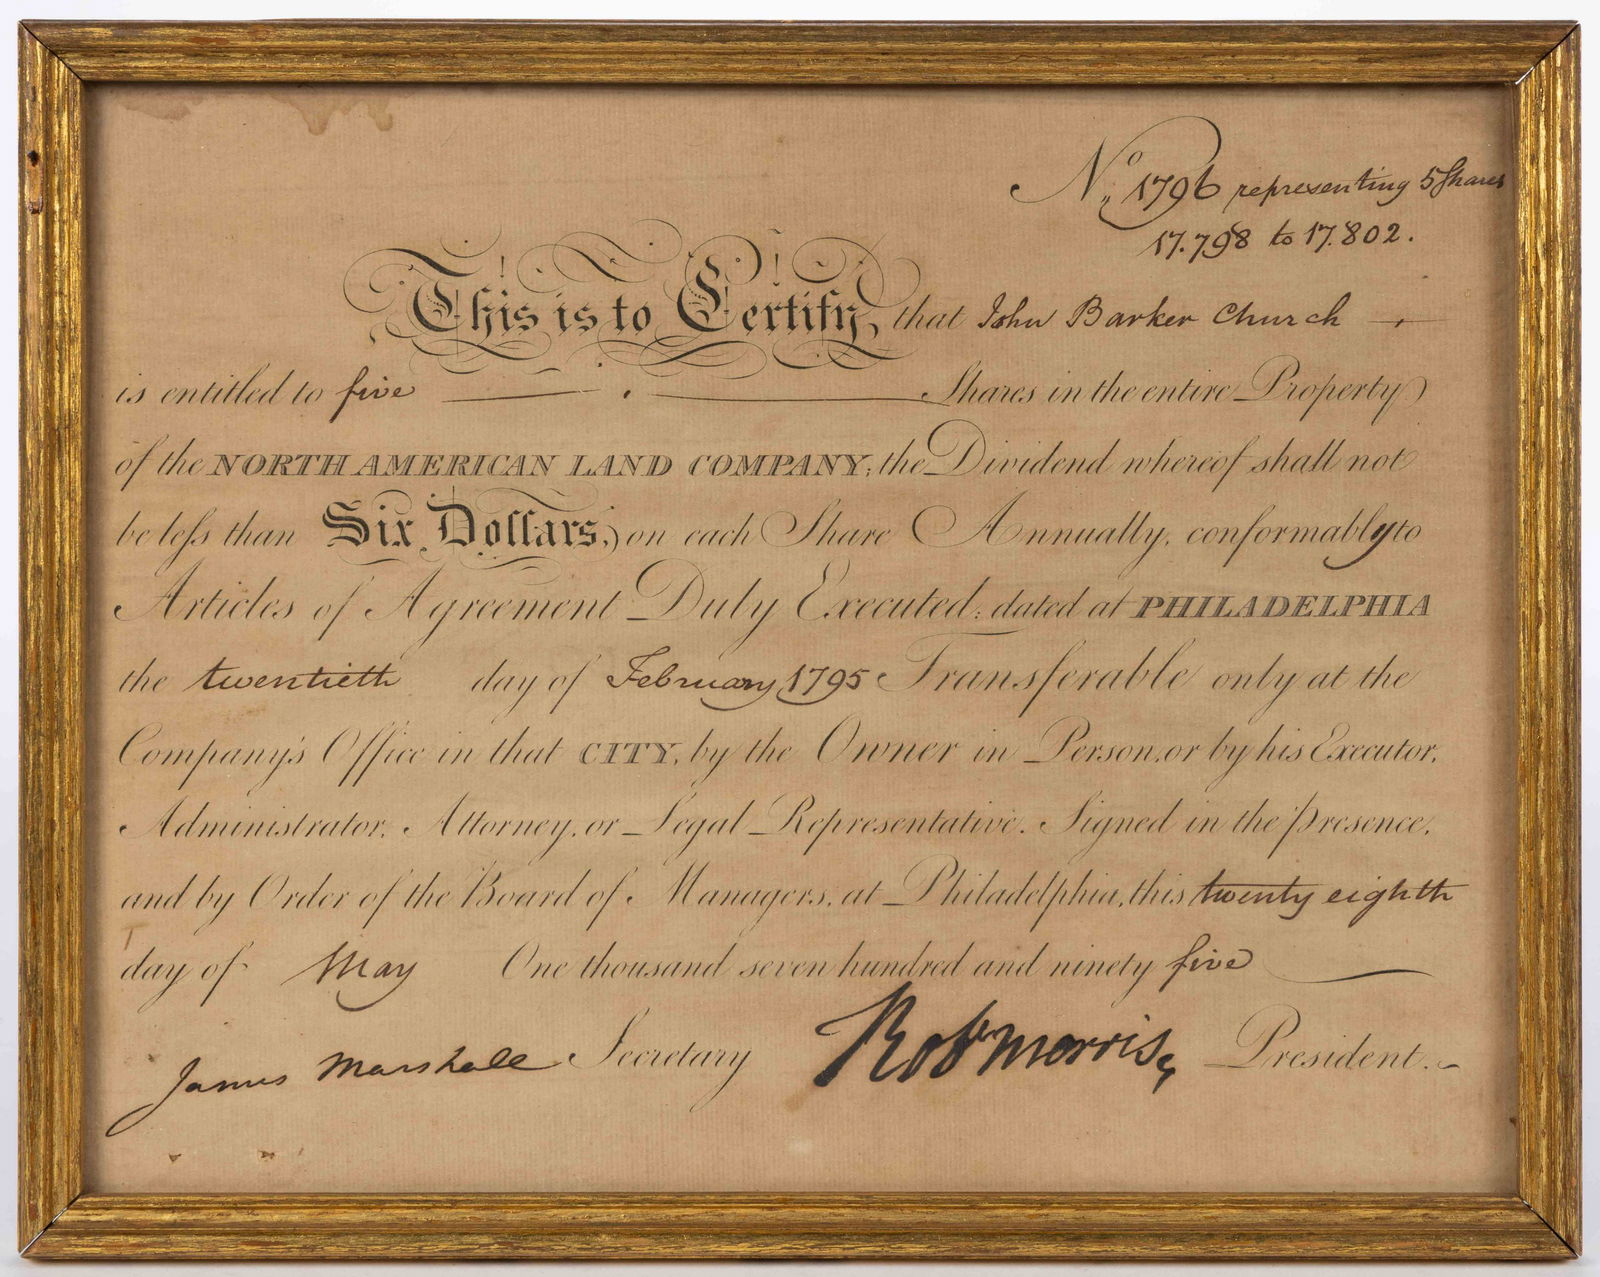 No. 1796 representing 5 Shares
17.798 to 17.802.
This is to Certify, that John Barker Church
is entitled to five Shares in the entire Property
of the NORTH AMERICAN LAND COMPANY; the Dividend whereof shall not
be leſs than Six Dollars, on each Share Annually, conformably to
Articles of Agreement Duly Executed; dated at PHILADELPHIA
the twentieth day of February 1795 Transferable only at the
Company's Office in that CITY, by the Owner in Person, or by his Executor,
Administrator, Attorney, or Legal Representative. Signed in the presence,
and by Order of the Board of Managers, at Philadelphia, this twenty eighth
day of May One thousand seven hundred and ninety five
James Marshall Secretary Robt Morris President.